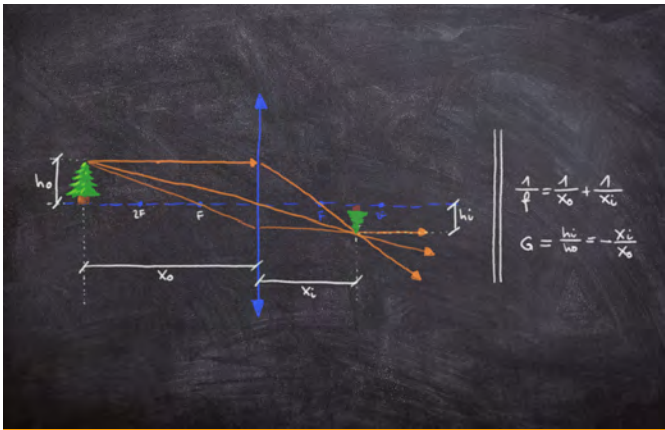 h₀
2F
F
F
hi
x₀
xi
1/f = 1/x₀ + 1/xi
G = hi/h₀ = -xi/x₀